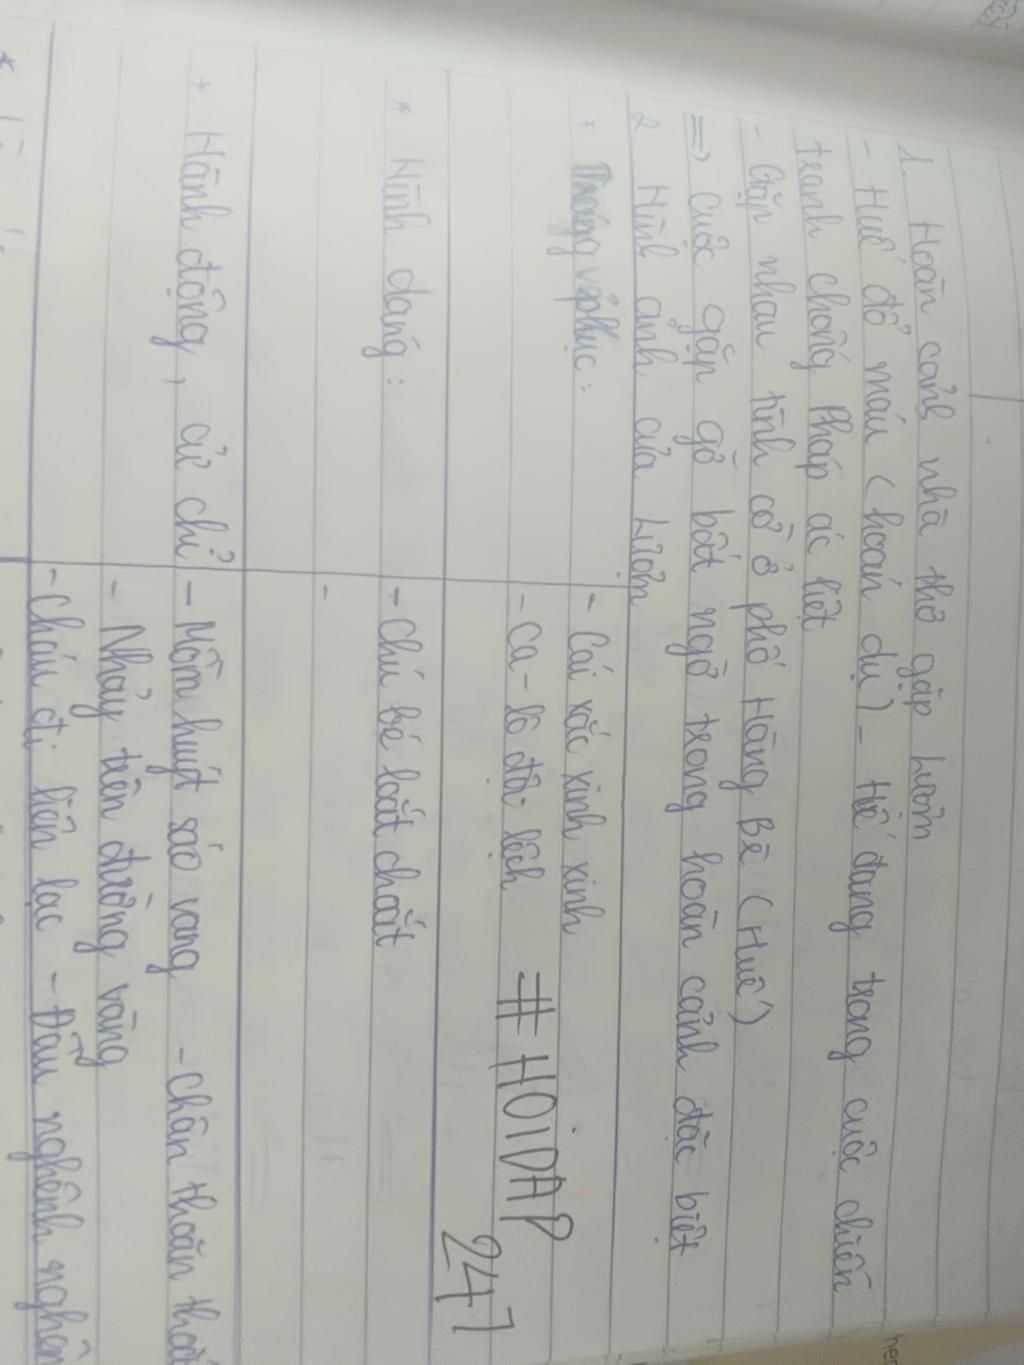 1. Hoàn cảnh nhà thơ gặp Lượm
- Huế đổ máu (hoán dụ) - Huế đang trong cuộc chiến
tranh chống Pháp ác liệt
- Gặp nhau tình cờ ở phố Hàng Bè (Huế)
=> Cuộc gặp gỡ bất ngờ trong hoàn cảnh đặc biệt
2. Hình ảnh của Lượm
* Trang phục: - Cái xắc xinh xinh
- Ca-lô đội lệch
#HOIDAP
247
* Hình dáng: - Chú bé loắt choắt
-
* Hành động, cử chỉ - Mồm huýt sáo vang - Chân thoăn
- Nhảy trên đường vàng
- Cháu đi liên lạc - Đầu nghênh
*